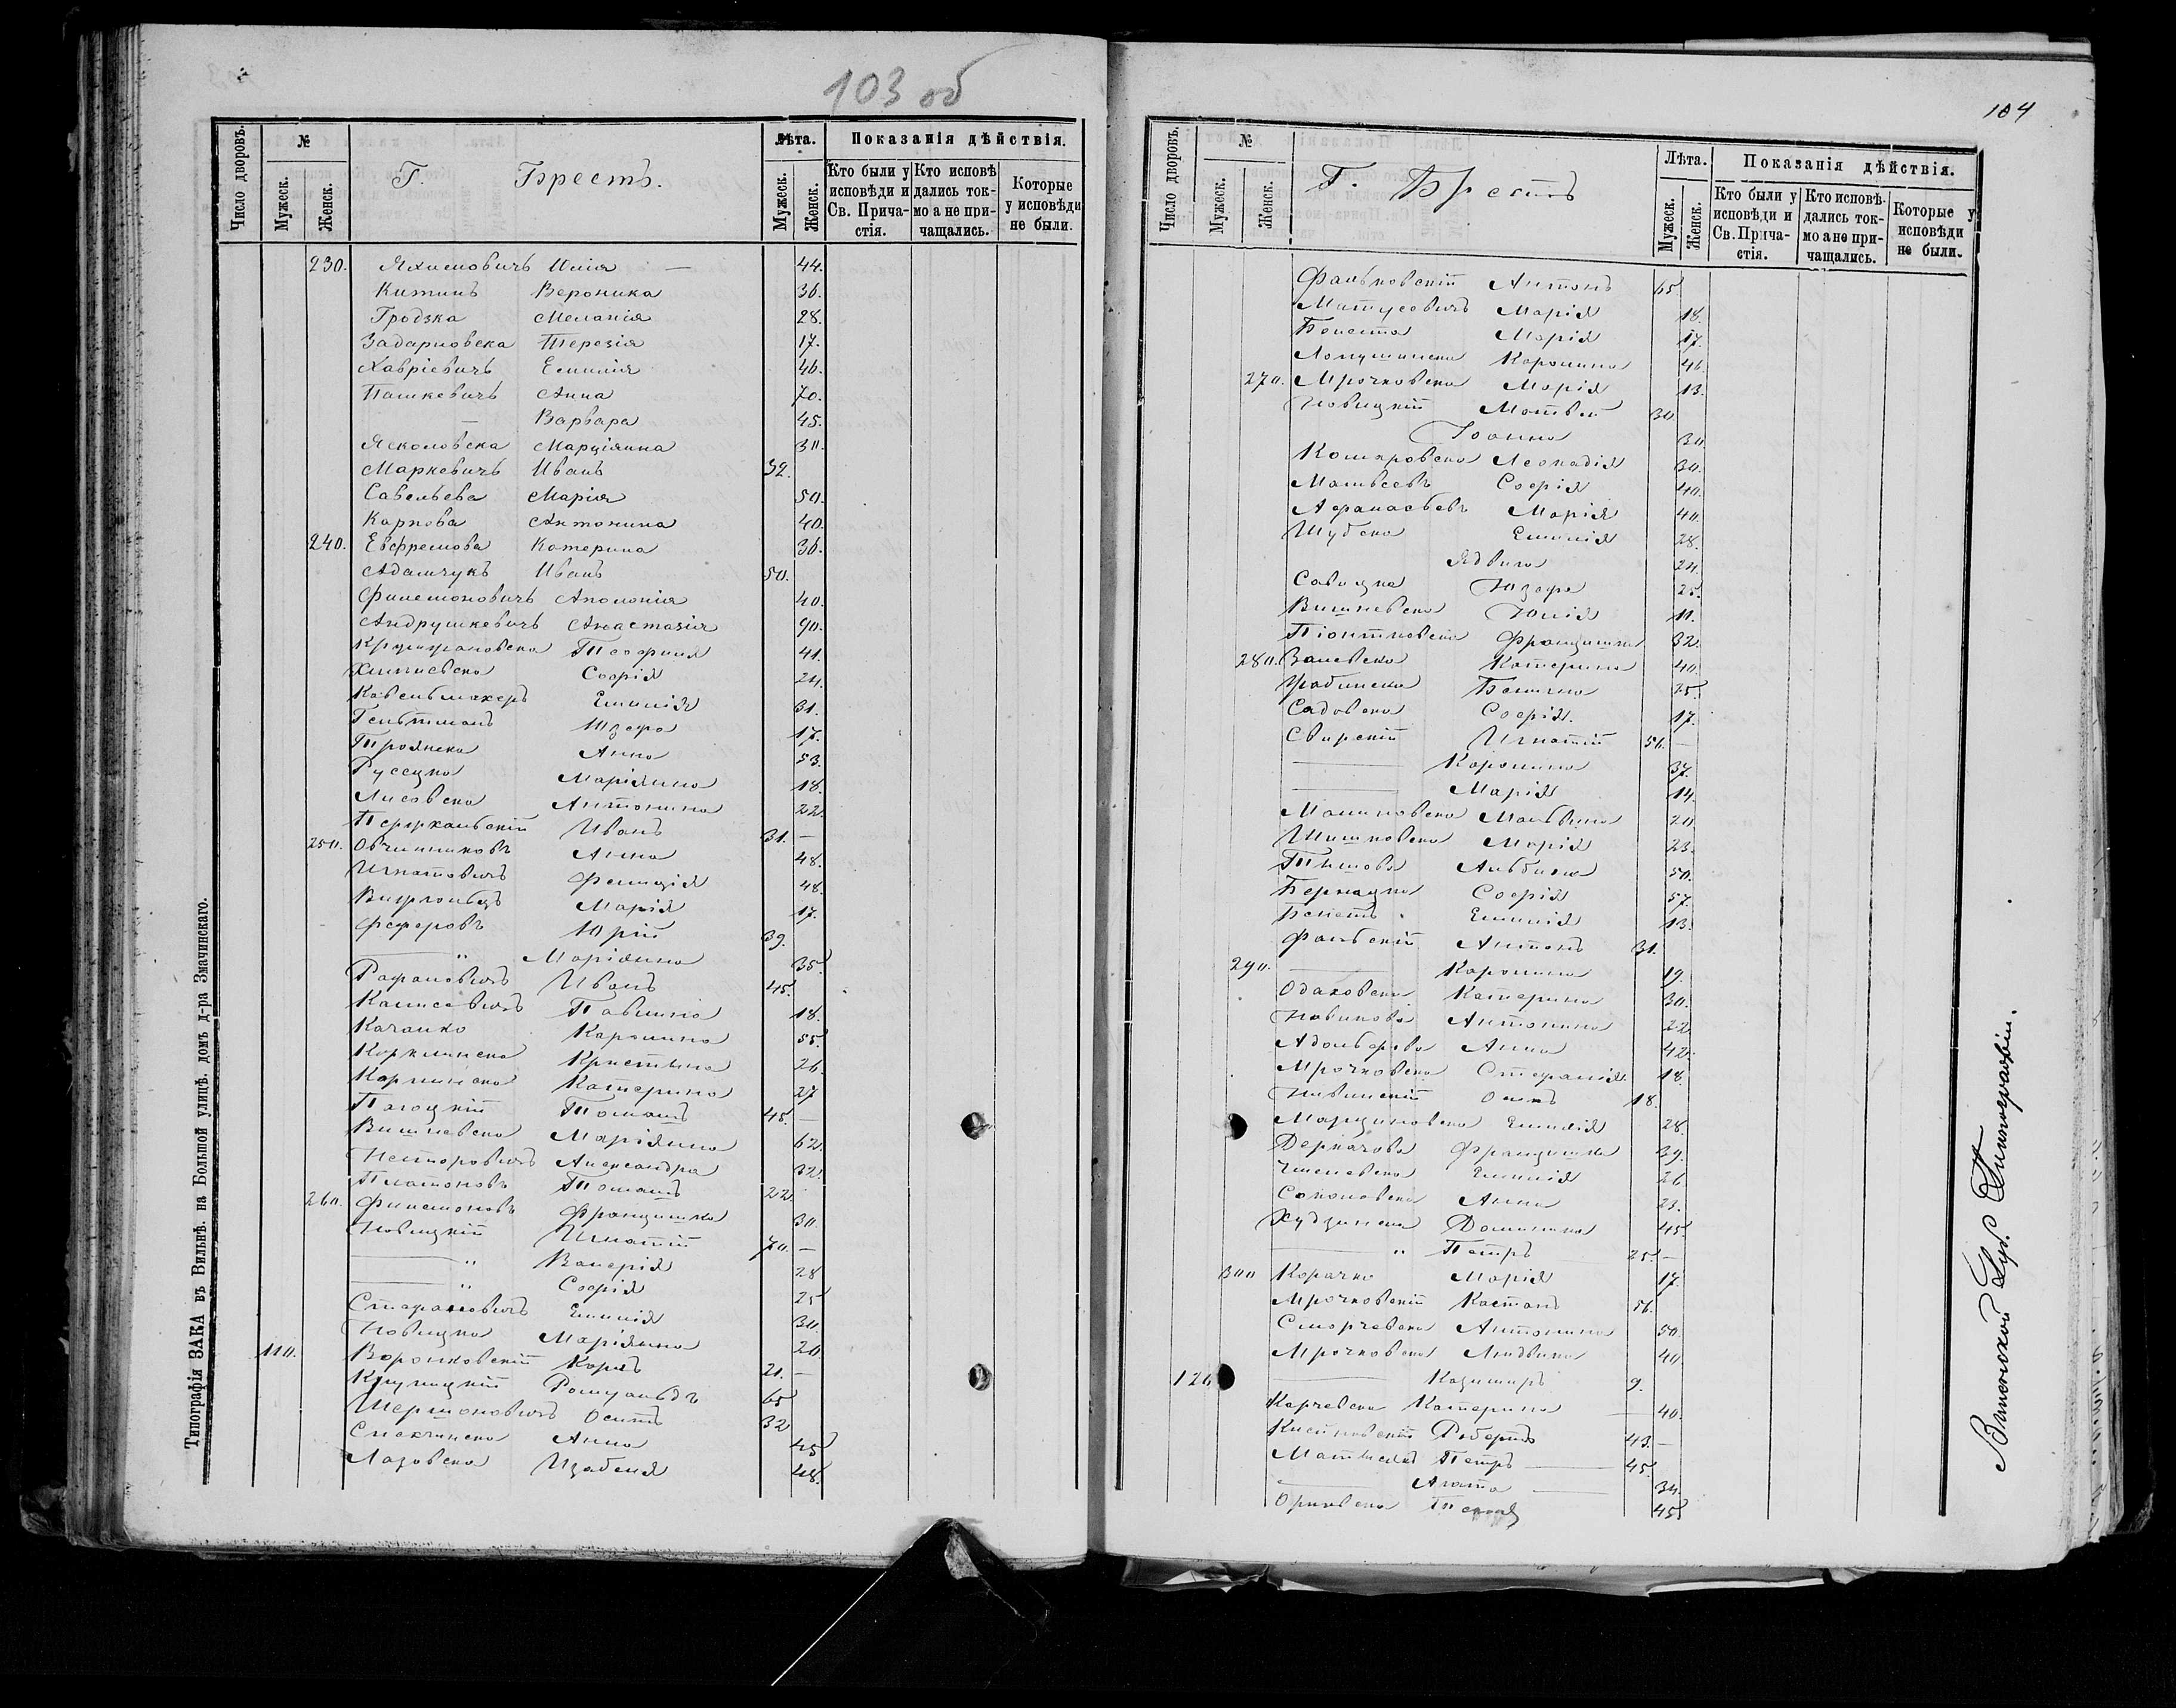 103 об
Число дворовъ.
№
Мужеск.
Женск.
Г. Брестъ.
Лѣта.
Мужеск.
Женск.
Показанія дѣйствія.
Кто были у исповѣди и Св. Прича-стія.
Кто исповѣ дались ток-мо а не при-чащались.
Которые у исповѣди не были.
230. Яхимовичъ Юлія — 44.
Китинъ Вероника 36.
Гродзка Меланія 28.
Задарновска Терезія 17.
Хавріевичъ Емилія 46.
Пашкевичъ Анна 70.
— Варвара 45.
Ясколовска Марціянна 30.
Маркевичъ Иванъ 32.
Савельева Марія 50.
Карпова Антонина 40.
240. Евфремова Катерина 36.
Адамчукъ Иванъ 50.
Филемоновичъ Аполонія 40.
Андрушкевичъ Анастазія 90.
Теофиля 41.
Хмилевска Софія 24.
Емилія 31.
Гельтманъ Юзефа 17.
Троянска Анна 53.
Руссецка Маріянна 18.
Лисовска Антонина 22.
Иванъ 31. —
250. Овчинниковъ Анна 48.
Игнатовичъ Фелиція 48.
Марія 17.
Федоровъ Юрій 39.
— " Маріянна 35.
Рафаловичъ Иванъ 45.
Павлина 18.
Качанко Каролина 55.
Кристына 26.
Карпинска Катерина 27
Томашъ 45. —
Вишневска Маріянна 62.
Несторовичъ Александра 32.
Платоновъ Томашъ 22.
260. Филемоновъ Францишка 30.
Новицкій Игнатій 70. —
— " Валерія 28
— " Софія 25
Стефановичъ Емилія 30.
Новицка Маріянна 20
110. Воронковскій Карлъ 21. —
Ромуальдъ 65
Шермоновичъ Осипъ 32
Анна 45
Лазовска Изабеля 48.
Типографія ЗАКА въ Вильнѣ. на Большой улицѣ. домъ д-ра Змачинскаго.
104
Число дворовъ.
№
Мужеск.
Женск.
Г. Брестъ
Лѣта.
Мужеск.
Женск.
Показанія дѣйствія.
Кто были у исповѣди и Св. Прича-стія.
Кто исповѣ-дались ток-мо а не при-чащались.
Которые у исповѣди не были.
Фальковскій Антонъ 65
Матусовичъ Марія 18.
Марія 17.
Лопушинска Каролина 46.
270. Мрочковска Марія 13.
Новицкій Матвей 30.
Іоанна 30.
Комаровска Леокадія 30.
Матвеевъ Софія 40.
Афанасьевъ Марія 40.
Шубска Емилія 28.
Ядвига 24.
Савицка Юзефа 25.
Вишневска Юлія 11.
Піонтковска Францишка 32.
280. Залевска Катерина 40.
Бальбина 25.
Садовска Софія. 17.
Свирскій Игнатій 56. —
— Каролина 37.
— Марія 14.
Малиновска Мальвина 20
Шишковска Марія 23.
Титова Альбина 50.
Бернацка Софія 57.
Емилія 13.
Антонъ 31.
290. — Каролина 19.
Одаховска Катерина 30.
Новикова Антонина 22
Адольфова Анна 42.
Мрочковска Стефанія. 18.
Нивинскій Осипъ 18.
Марциновска Емилія 28.
Дергачова Францишка 39.
Емилія 26
Соколовска Анна 23.
Худзинска Доминика 45.
— " Петръ 25. —
300 Корачко Марія 17.
Мрочковскій Каетанъ 56.
Сморчевска Антонина 50.
Мрочковска Людвика 40.
120 — Казимиръ 9.
Карчевска Катерина — 40.
Робертъ 43. —
Петръ — 45.
— Агата — 34.
45
Виленской Губ. Типографіи.